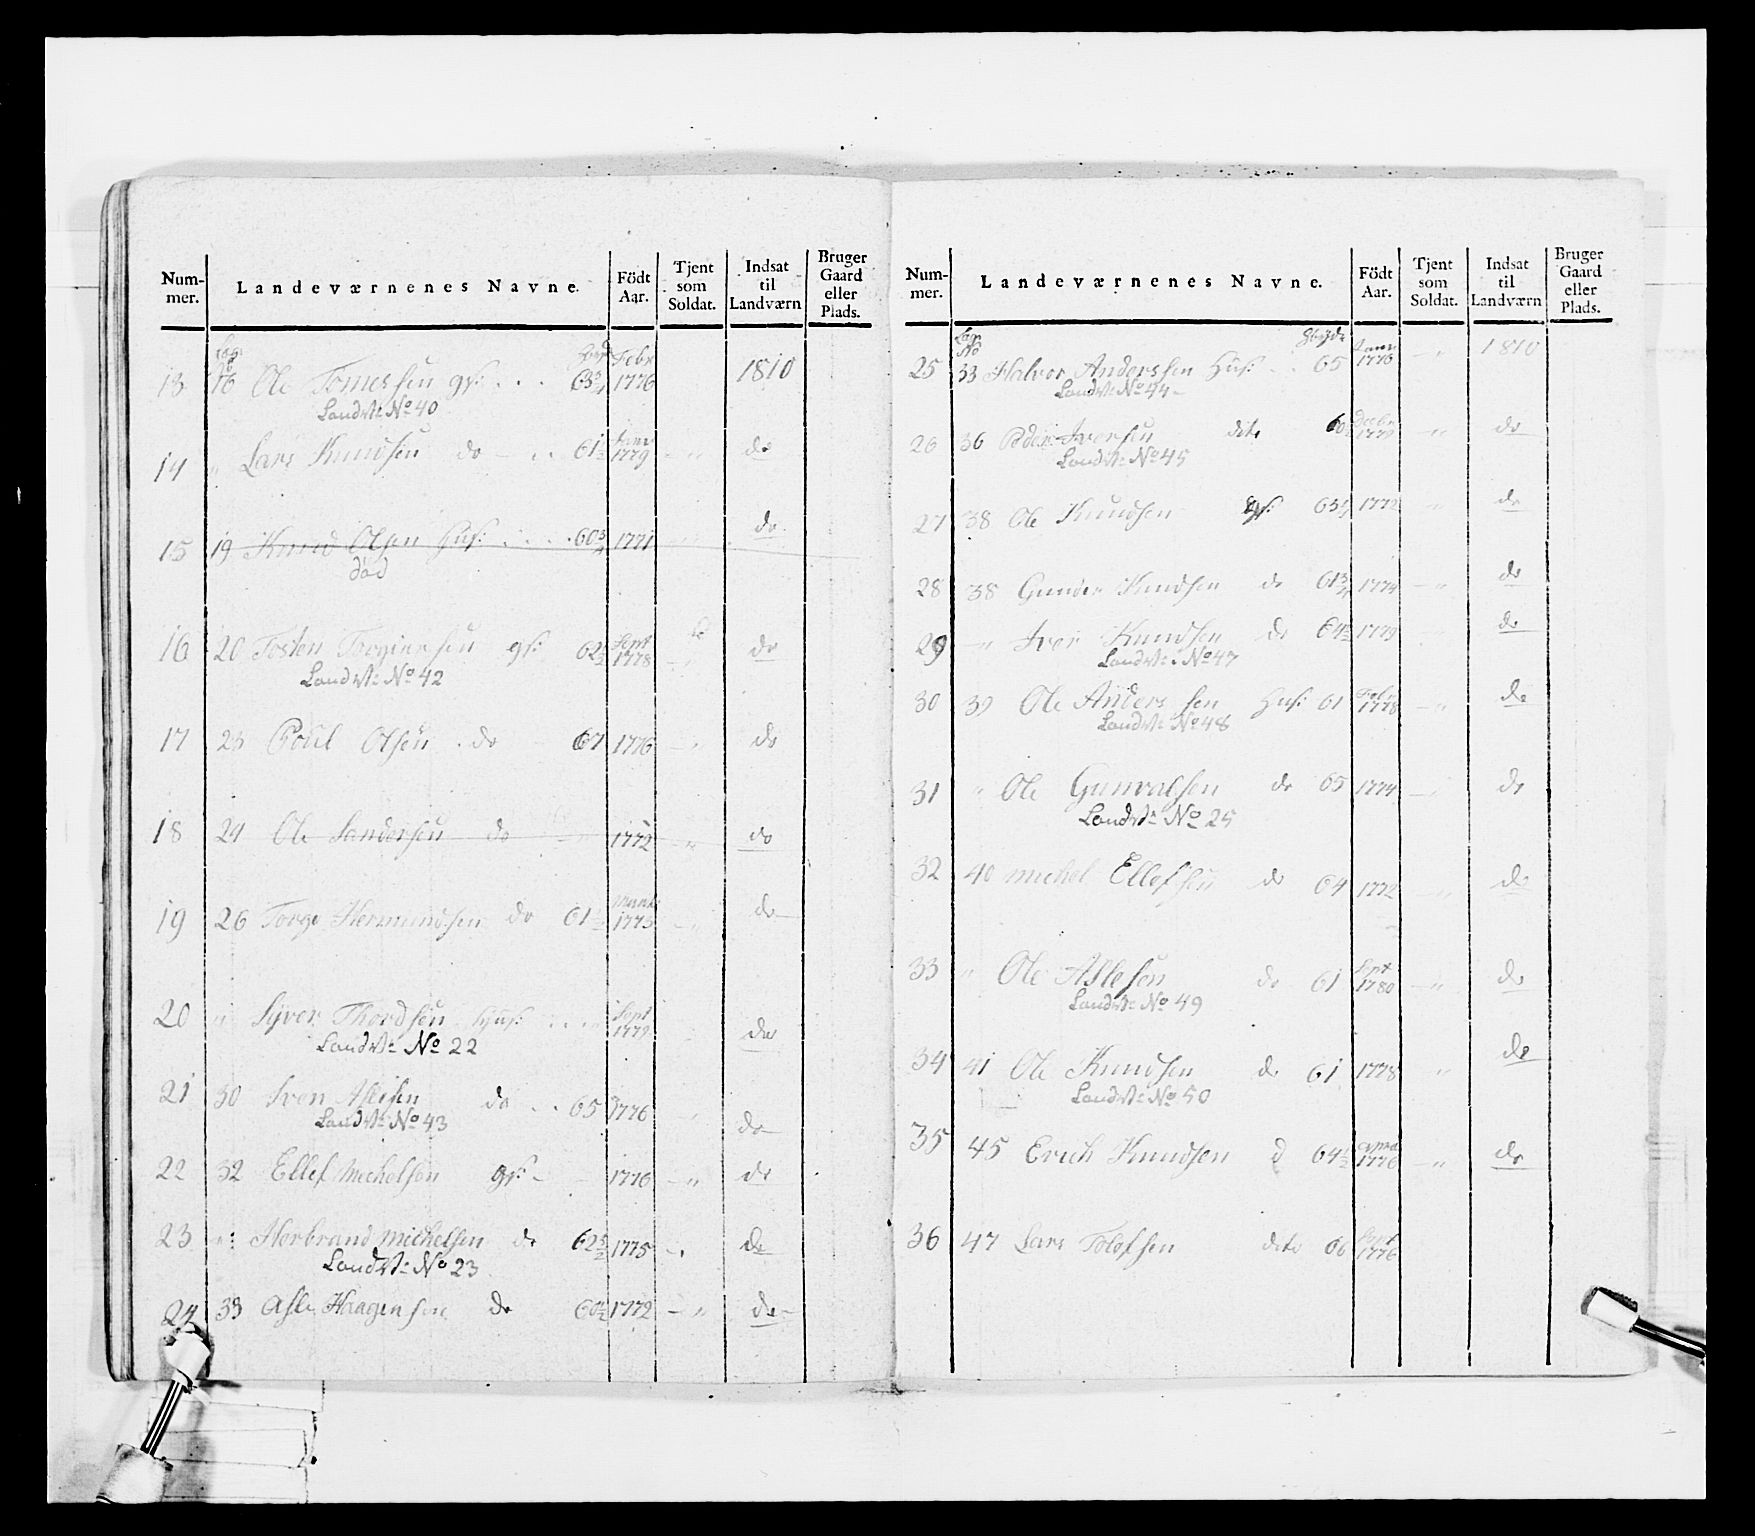 Num-
mer.
Landeværnenes Navne.
Födt
Aar.
Tjent
som
Soldat.
Indsat
til
Landværn
Bruger
Gaard
eller
Plads.
13 16 Ole Tomessen gs: . . . 63 3/4 Febr 1776 1810
Landv: No 40
14 " Lars Knudsen do - . . 61 1/2 1779 " do
15 19 Knud Olsen Hus: . . . . 60 3/4 1771 do
död
16 20 Tosten Torgiersen gs: 62 1/2 Sept 1778 - " do
Landv: No 42
17 23 Poul Olsen . do 67 1776 - " do
18 24 Ole Sandersen do - " 1772 - " do
19 26 Torge Hermundsen do 61 1/2 1773 - " do
20 " Syver Thordsen Hus: . . . " Sept 1779 do
Landv: No 22
21 30 Sven Aslesen do . . 65 1776 " do
Landv: No 43
22 32 Ellef Michelsen gs: - - 1776 - " do
23 " Herbrand Michelsen do 62 1775 - " do
Landv: No 23
24 33 Asle Haagensen do 60 1/2 1772 - " do
Num-
mer.
Landeværnenes Navne.
Födt
Aar.
Tjent
som
Soldat.
Indsat
til
Landværn
Bruger
Gaard
eller
Plads.
25 33 Halvor Anderssen Hus: . . 65 1776 - " 1810
Landv: No 44
26 36 Peder Iversen dito 60 " do
Landv: No 45
27 38 Ole Knudsen gs: 63 1772 " do
28 38 Gunder Knudsen do 61 3/4 1774 - " do
29 " Iver Knudsen do 64 1/2 1779 do
Landv: No 47
30 39 Ole Anderssen Hus: 61 1778 - " do
Landv: No 48
31 " Ole Gunvalsen do 65 1774 - " do
Landv: No 25
32 40 Michel Ellefsen do 64 1772 - " do
33 " Ole Aslesen do 61 Sept 1780 - " do
Landv: No 49
34 41 Ole Knudsen do 61 1778 " do
Landv: No 50
35 45 Erich Knudsen d 64 1/2 1776 - " do
36 47 Lars Tolefsen dito 66 1776